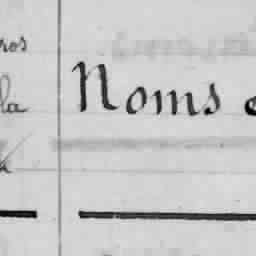 ros
la
Noms